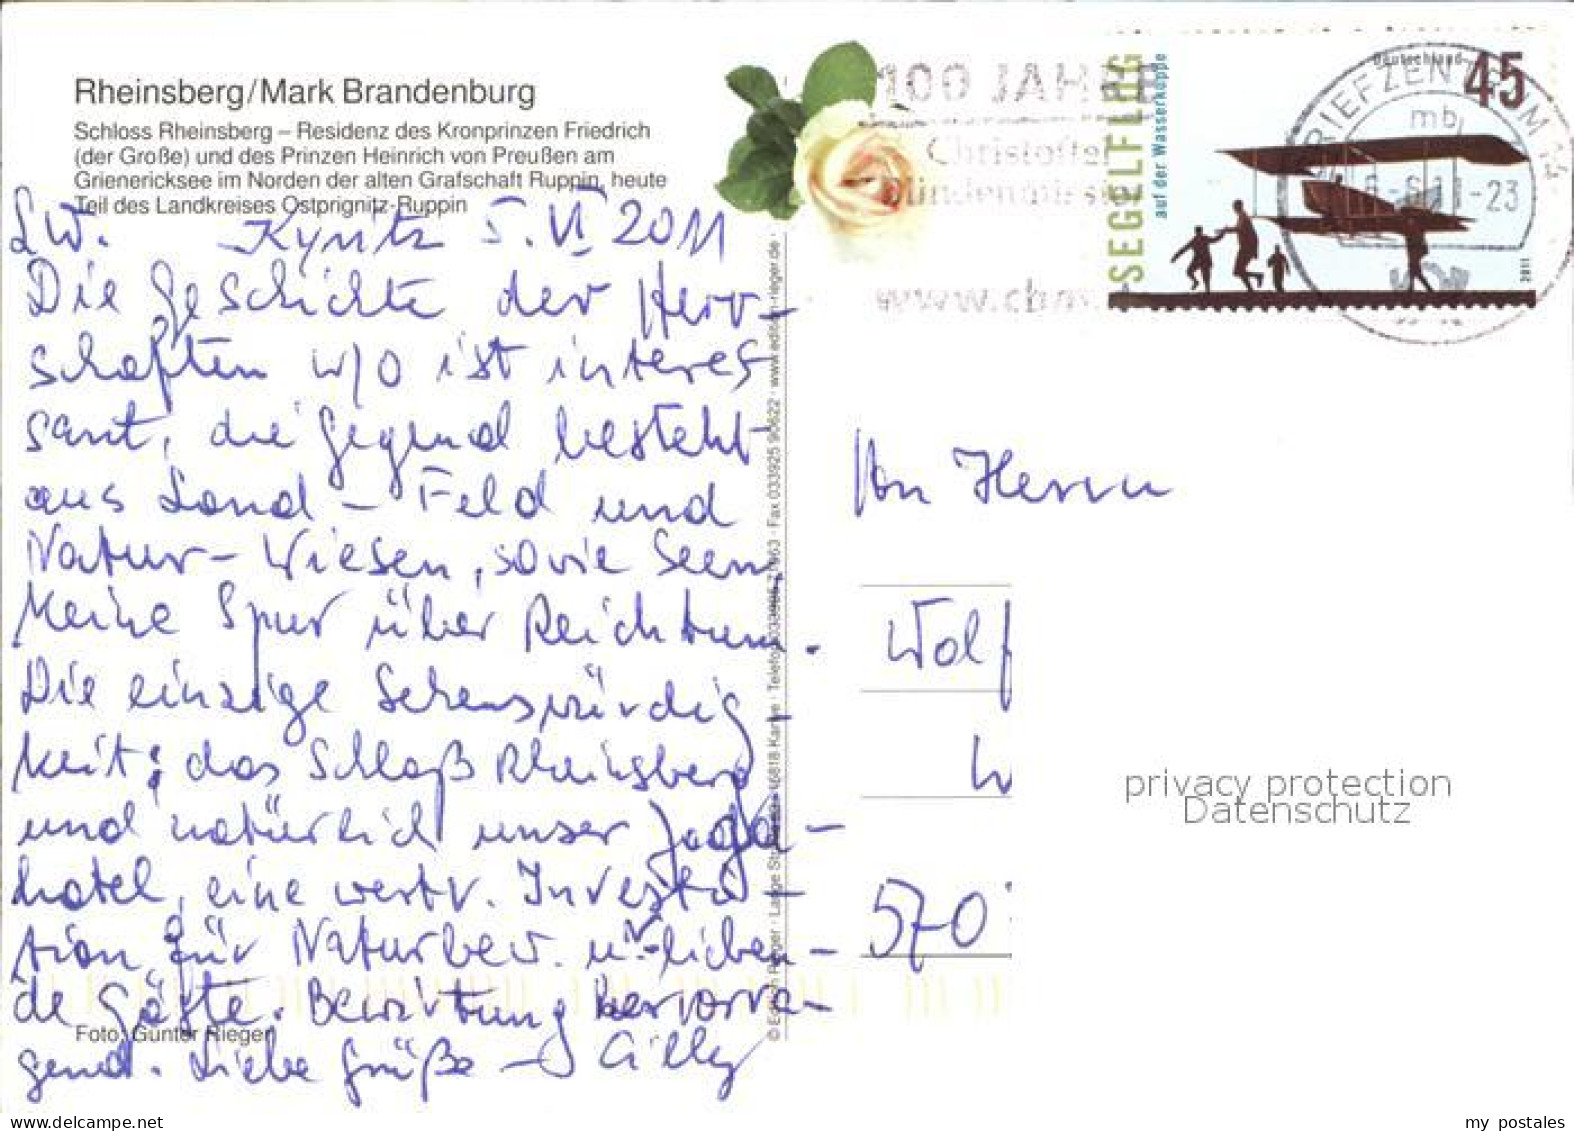 Rheinsberg/Mark Brandenburg
Schloss Rheinsberg – Residenz des Kronprinzen Friedrich
(der Große) und des Prinzen Heinrich von Preußen am
Grienericksee im Norden der alten Grafschaft Ruppin, heute
Teil des Landkreises Ostprignitz-Ruppin
LW. Kyritz 5. VI 2011
Die Geschichte der Herr-
schaften w/o ist interes
sant, die Gegend besteht
aus Land – Feld und
Natur – Wiesen, sowie Seen,
keine Spur über Reichtum.
Die einzige Sehenswürdig-
keit; das Schloß Rheinsberg
und natürlich unser Jagd-
hotel, eine wertv. Investi-
tion für Naturbew. u. lieben-
de Gäste. Bewirtung hervorra-
gend. Liebe Grüße – Cilly
Foto: Günter Rieger
© Edition Rieger · Lange Str. 16818 Karwe · Telefon 033925 71963 · Fax 033925 90622 · www.edition-rieger.de
100 JAHRE
Christoffel
Blindenmission
www.cbm.
SEGELFLUG
auf der Wasserkuppe
Deutschland
45
2011
BRIEFZENTRUM
mb
-23
An Herrn
Wolf
W
570
privacy protection
Datenschutz
my postales
www.delcampe.net